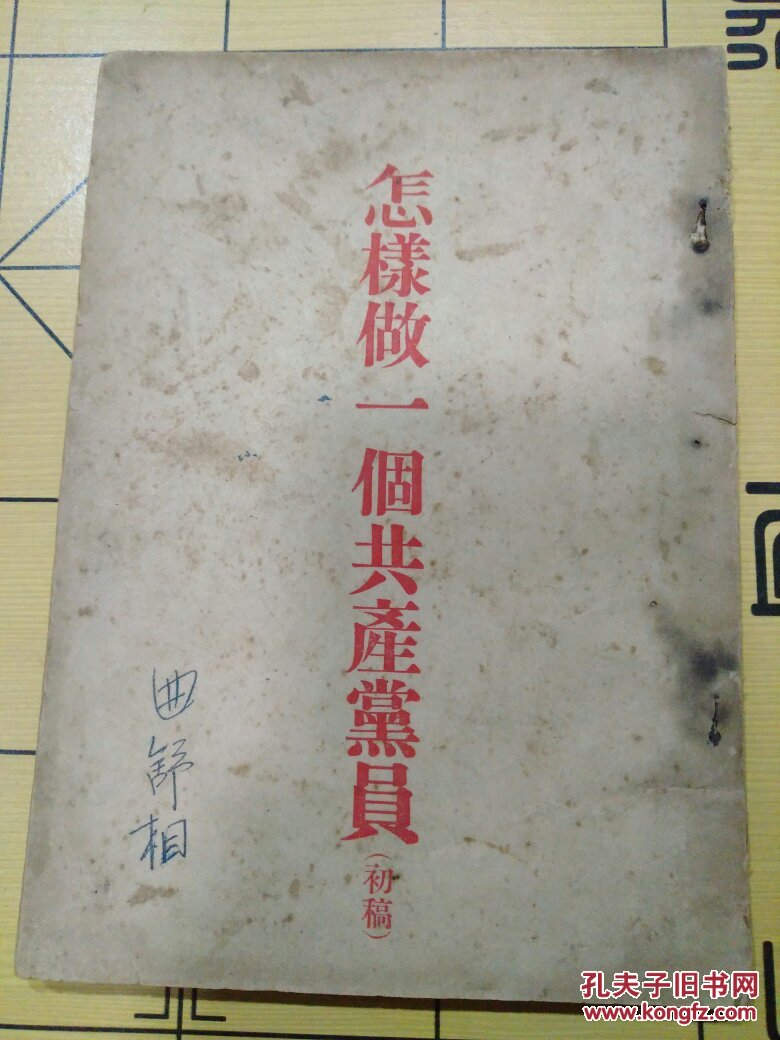 怎樣做一個共產黨員
（初稿）
曲舒相
孔夫子旧书网
www.kongfz.com